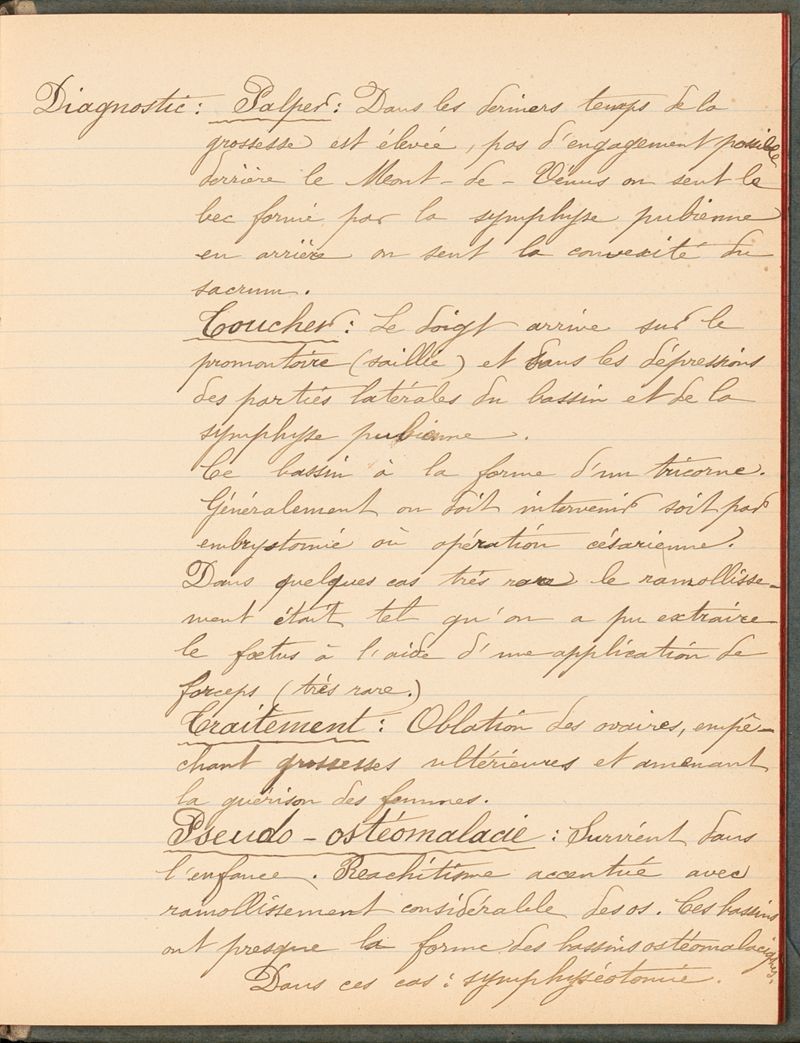 Diagnostic : Palper : Dans les derniers temps de la
grossesse est élevée, pas d'engagement possible
derrière le Mont-de-Vénus on sent le
bec formé par la symphyse pubienne
en arrière on sent la convexité du
sacrum.
Toucher : Le doigt arrive sur le
promontoire (saillie) et dans les dépressions
des parties latérales du bassin et de la
symphyse pubienne.
Ce bassin à la forme d'un tricorne.
Généralement on doit intervenir soit par
embryotomie où opération césarienne.
Dans quelques cas très rare le ramollisse-
ment était tel qu'on a pu extraire
le fœtus à l'aide d'une application de
forceps (très rare.)
Traitement : Oblation des ovaires, empê-
chant grossesses ultérieures et amenant
la guérison des femmes.
Pseudo-ostéomalacie : Survient dans
l'enfance. Reachitisme accentué avec
ramollissement considérable des os. Ces bassins
ont presque la forme des bassins ostéomalaciques.
Dans ces cas : symphyséotomie.